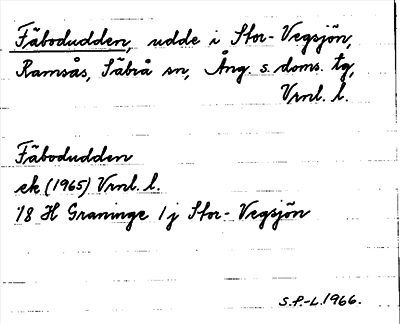 Fäbodudden, udde i Stor-Vegsjön,
Ramsås, Säbrå sn, Ång. s. doms. tg,
Vrnl. l.
Fäbodudden
ek (1965) Vrnl. l.
18 H Graninge 1 j Stor-Vegsjön
S.P.-L. 1966.